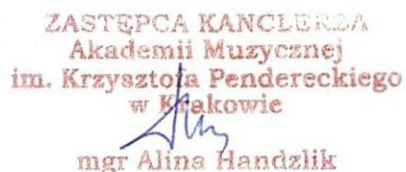 ZASTĘPCA KANCLERZA
Akademii Muzycznej
im. Krzysztofa Pendereckiego
w Krakowie
mgr Alina Handzlik